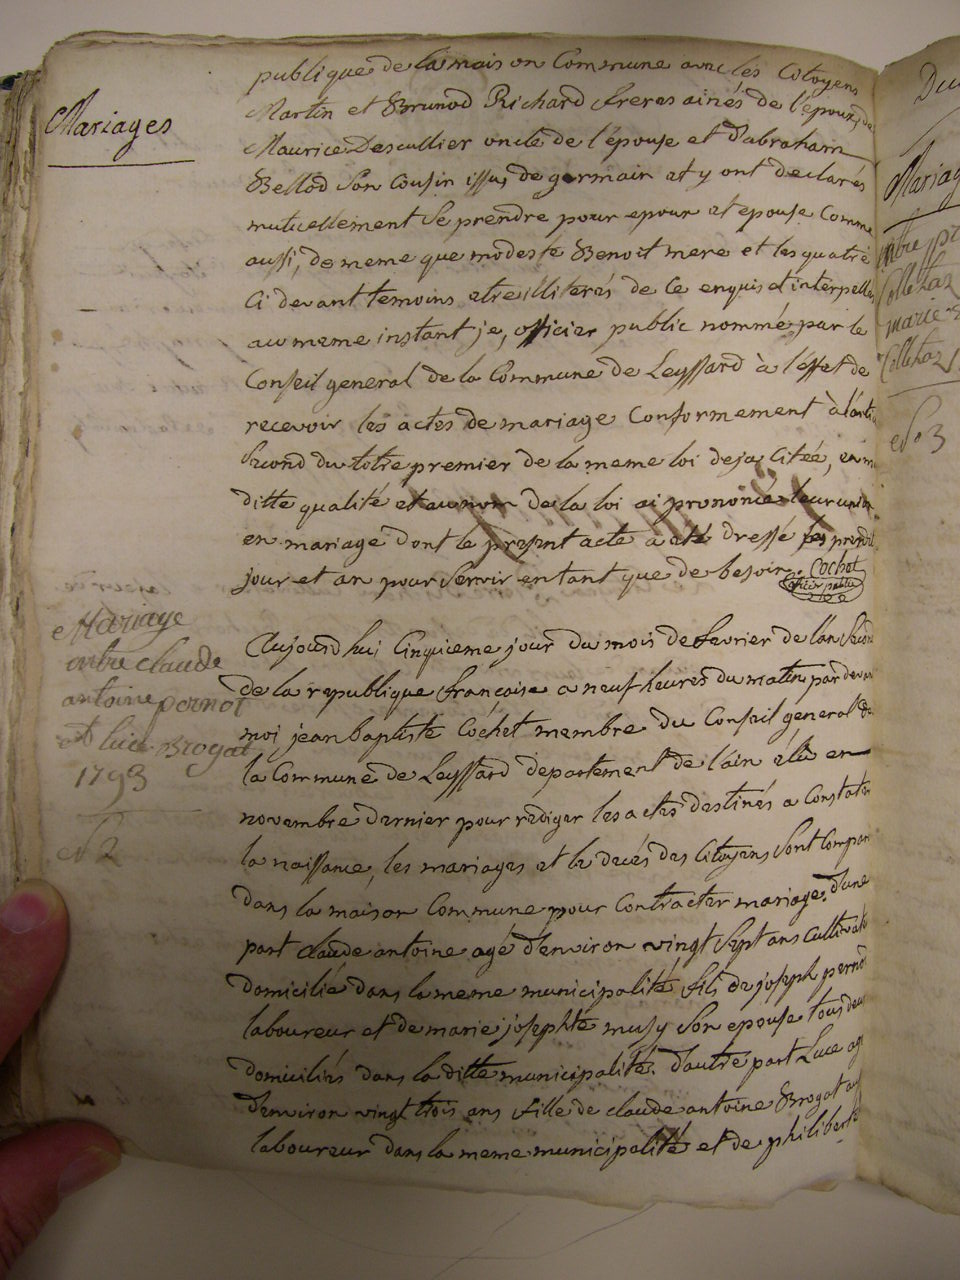 Mariages
publique de la maison Commune avec les Citoyens
Martin et Brunod Richard freres ainés de l'epoux, de
Maurice Descullier oncle de l'épouse et d'abraham
Bellod son Cousin issu, de germain et y ont declarés
mutuellement se prendre pour epoux et epouse Comme
aussi, de meme que modeste Benoit mere et les quatre
Ci devant temoins etre illiterés de Ce enquis et interpellés
au meme instant je, officier public nommé par le
Conseil general de la Commune de Leyssard à l'effet de
recevoir les actes de mariage Conformement à l'arti
Second du titre premier de la meme loi deja Citée, en m
ditte qualité et au nom de la loi ai prononcé leur union
en mariage dont le present acte a été dressé les presen
jour et an pour servir en tant que de besoin. Cochet
officier public
Mariage
entre claude
antoine pernot
et luce Brogat
1793
N° 2
Aujourd hui Cinquieme jour du mois de fevrier de l'an Second
de la republique française a neuf heures du matin par devant
moi jean baptiste Cochet membre du Conseil general de
la Commune de Leyssard departement de l'ain elu en
novembre dernier pour rediger les actes destinés a Constater
la naissance, les mariages et le decés des Citoyens sont Compar
dans la maison Commune pour Contracter mariage, d'une
part claude antoine agé d'environ vingt sept ans Cultivate
domicilié dans la meme municipalité fils de joseph pernot
laboureur et de marie josephte musy son epouse tous deux
domiciliés dans la ditte municipalité. d'autre part Luce ag
d'environ vingt trois ans fille de claude antoine Brogat
laboureur dans la meme municipalité et de philiberte
Du
Mariag
entre
Colletaz
marie
Colletaz
N° 3